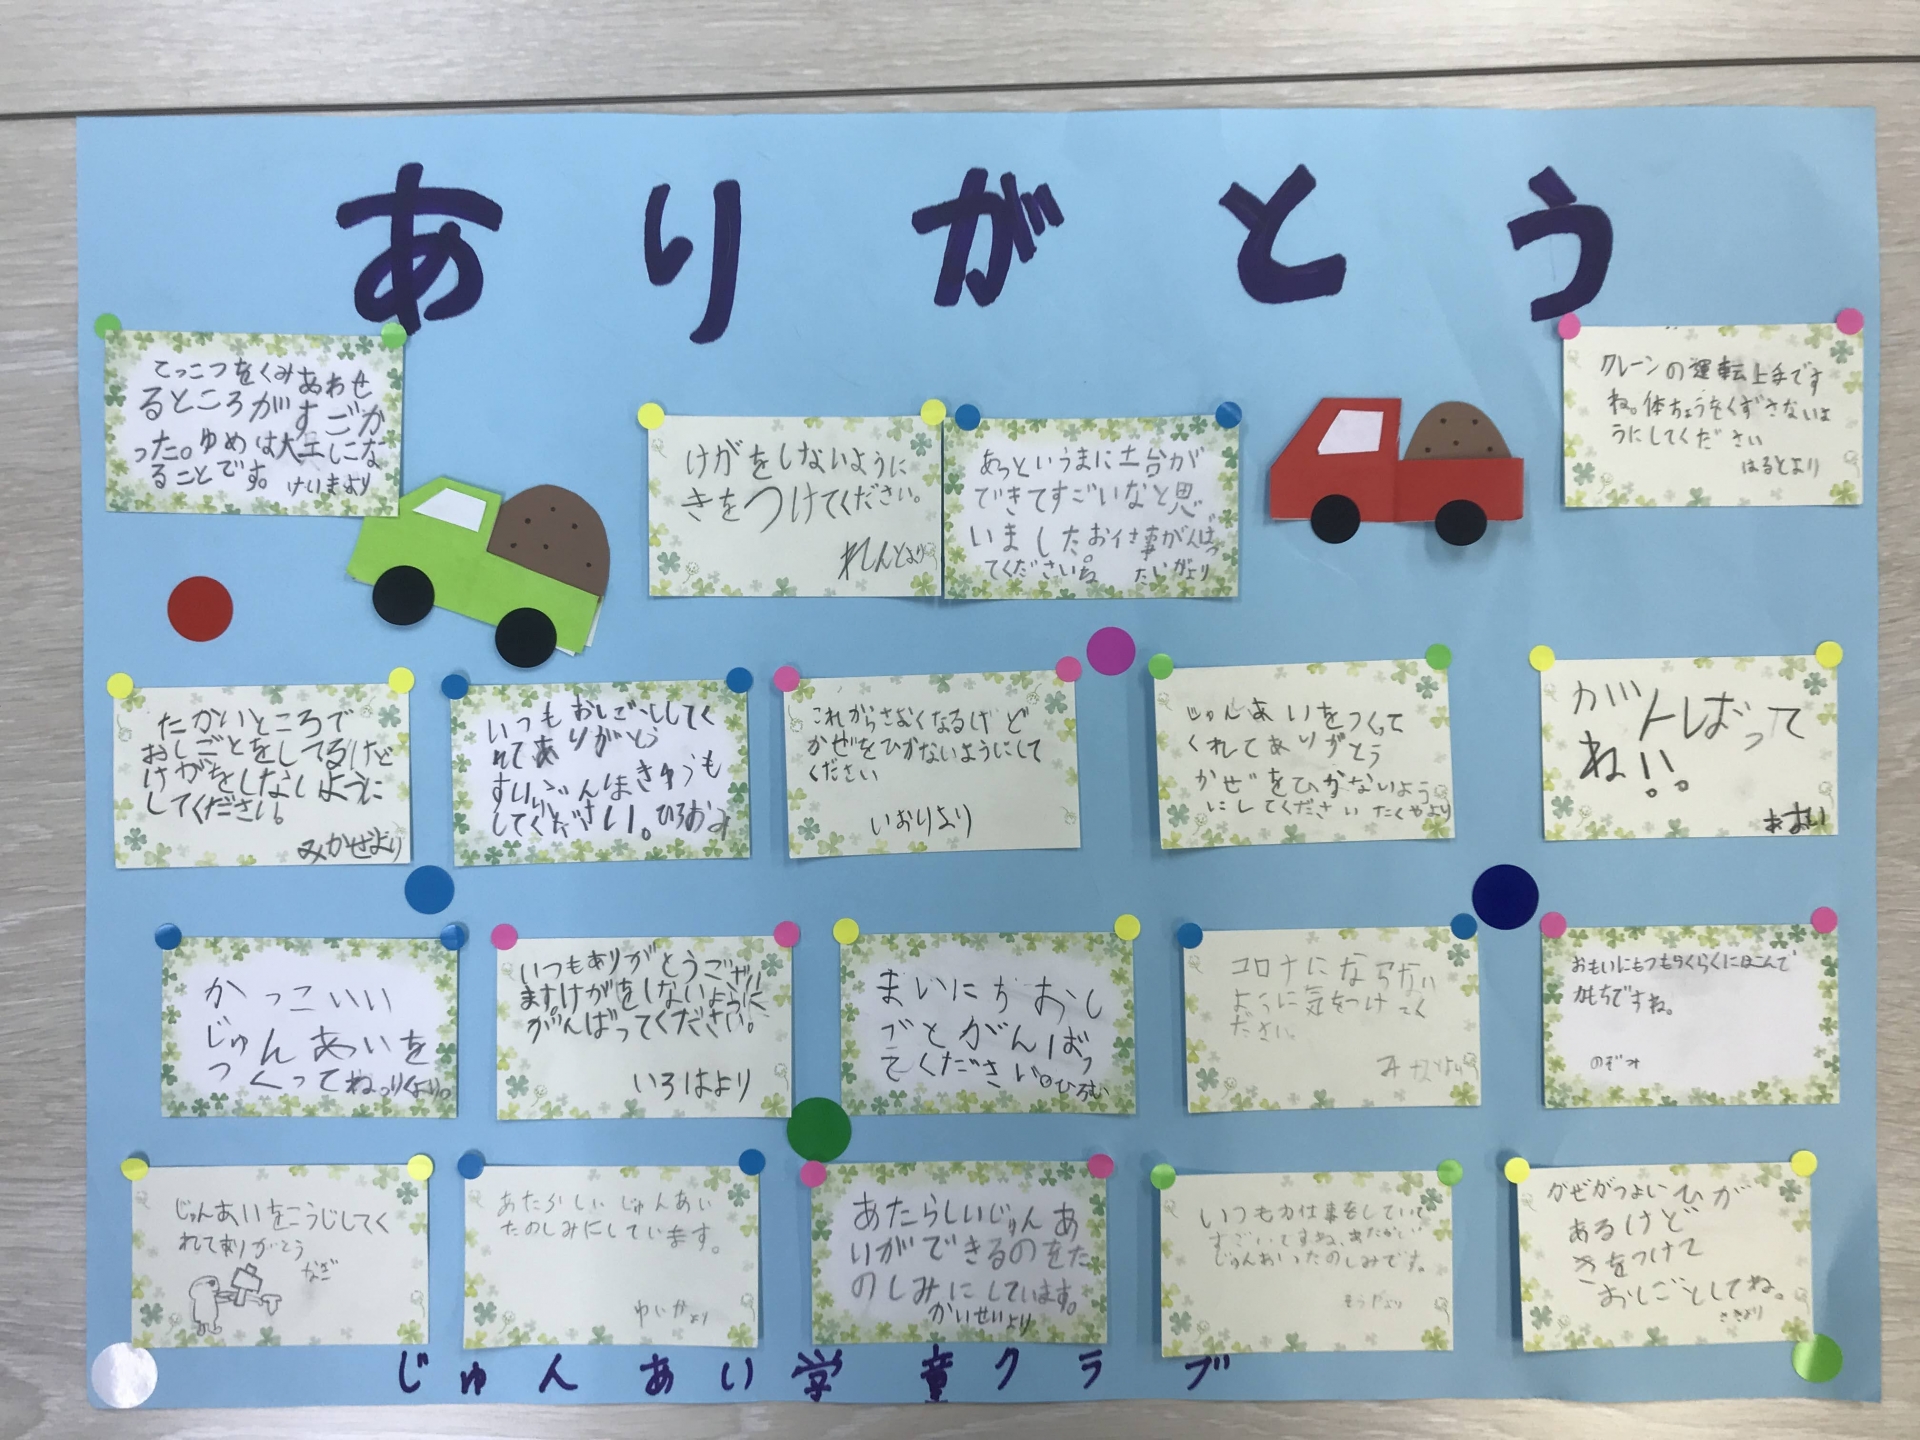 ありがとう
てっこつをくみあわせ
るところがすごか
った。ゆめは大工しこな
ることです。
けいまより
けがをしないように
きをつけてください。
れんとより
あっというまに土台が
できてすごいなと思
いました。お仕事がんばっ
てくださいね
たいがより
クレーンの運転上手です
ね。体ちょうをくずさないよ
うにしてください
はるとより
たかいところで
おしごとをしてるけど
けがをしないように
してください。
みかぜより
いつもおしごとしてく
れてありがとう
すいぶんほきゅうも
してください。ひろおみ
これからさむくなるけど
かぜをひかないようにして
ください
いおりより
じゅんあいをつくって
くれてありがとう
かぜをひかないよう
にしてください たくやより
がんばって
ね!!
あおい
かっこいい
じゅんあいを
つくってねっりくより。
いつもありがとうござい
ます。けがをしないように
がんばってください。
いろはより
まいにちおし
ごとがんばっ
てください。ひろむ
コロナにならない
ように気をつけてく
ださい。
より
おもいにもつもらくらくにはこんで
力もちですね。
のぞみ
じゅんあいをこうじしてく
れてありがとう
なぎ
あたらしいじゅんあい
たのしみにしています。
ゆいかより
あたらしいじゅんあ
いができるのをた
のしみにしています。
かいせいより
いつも力仕事をしていて
すごいですね、あたらしい
じゅんあいたのしみです。
そうたより
かぜがつよいひが
あるけどが
きをつけて
おしごとしてね。
ささより
じゅんあい学童クラブ